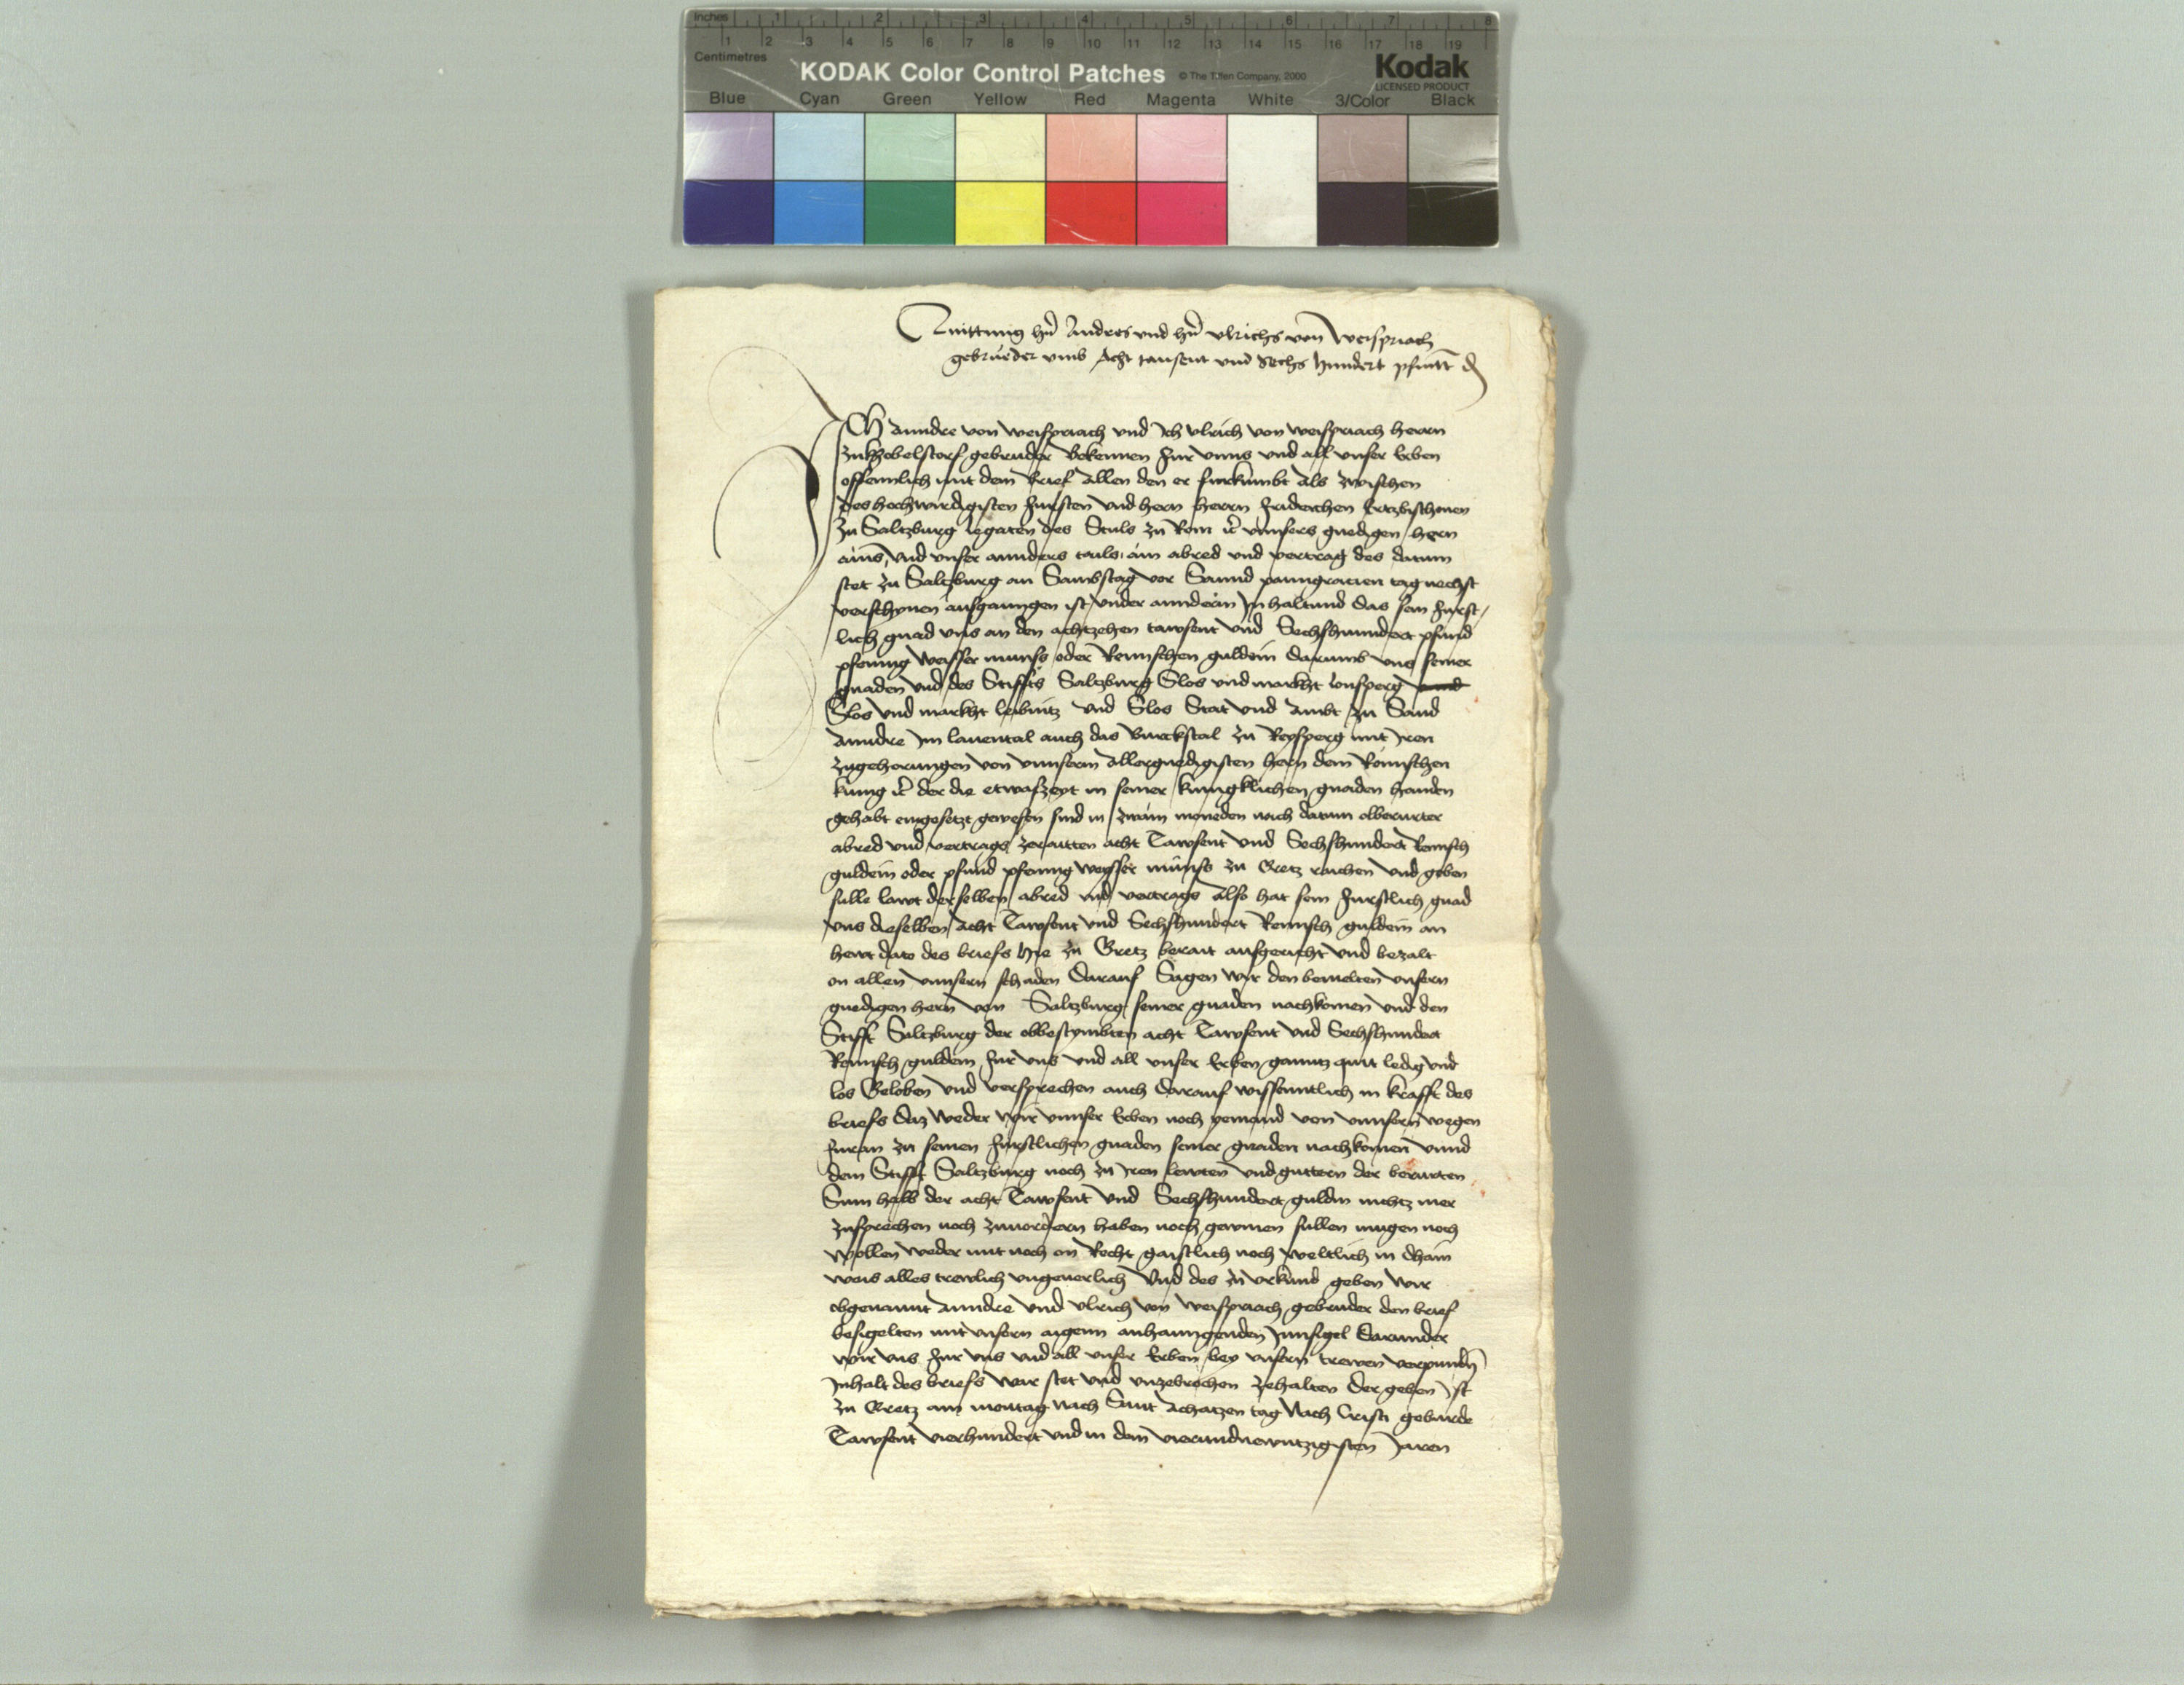 Inches 1 2 3 4 5 6 7 8
1 2 3 4 5 6 7 8 9 10 11 12 13 14 15 16 17 18 19
Centimetres
KODAK Color Control Patches © The Tiffen Company, 2000 Kodak
LICENSED PRODUCT
Blue Cyan Green Yellow Red Magenta White 3/Color Black
Quittung hrn Andres und hrn Ulrichs von Weispriach
gebrueder umb Acht tausent und Sechs hundert pfundt d
Ich Anndre von Weispriach und Ich Ulrich von Weispriach herrn
zu khobelstorf gebruder Bekennen fur unns und all unser Erben
offennlich mit dem brief Allen den er furkumbt Als zwischen
des hochwirdigisten fursten und hern herrn fridrichen Ertzbischouen
zu Saltzburg legaten des Stuls zu Rom etc unnsers gnedigen hern
ains, und unser annders tails ain abred und vertrag des datum
stet zu Saltzburg an Sambstag vor Sannd panngracien tag nechst
verschynen ausganngen ist, under annderm Inhaltund das sein furst
lich gnad uns an den achtzehen tawsent und Sechshunndert pfund
pfening Weisser munss oder Reinischen guldein darumb uns seiner
gnaden und des Stiffts Saltzburg Slos und markht lonsperg und
Slos und markht leibnitz und Slos Stat und Ambt zu Sand
Anndre Im lauental auch das Burckstal zu Reysperg mit Iren
zugehorungen von unnserm Allergnedigisten hern dem Romischen
kunig etc der die etwaszeyt in seiner kunigklichen gnaden handen
gehabt eingesetzt gewesen sind in zwain moneden nach datum obberurter
abred und vertrags zeraitten acht Tawsent und Sechshundert Reinisch
guldein oder pfund pfening weysser munss zu Gretz raichen und geben
sulle lawt derselben abred und vertrags Also hat sein furstlich gnad
uns dieselben Acht Tawsent und Sechshundert Reinisch guldein an
hewt dato des briefs hie zu Gretz berait ausgericht und bezalt
on allen unnsern schaden Darauf Sagen wir den bemelten unsern
gnedigen hern von Saltzburg seiner gnaden nachkomen und den
Stifft Saltzburg der obbestymbten acht Tawsent und Sechshundert
Reinisch guldein fur uns und all unser Erben ganntz quit ledig und
los Geloben und versprechen auch darauf wissenntlich in krafft des
briefs Daz weder wir unnser Erben noch yemand von unnsern wegen
furan zu seinen furstlichen gnaden seiner gnaden nachkomen unnd
dem Stifft Saltzburg noch zu Iren lewten und guttern der berurten
Sum halb der acht Tawsent und Sechshundert guldin nichtz mer
zusprechen noch zuuordern haben noch gewinnen sullen mugen noch
wollen weder mit noch on Recht gaistlich noch weltlich in dhain
weis alles trewlich ungeuerlich Und des zu urkund geben wir
obgenannt Anndre und Ulrich von Weispriach gebruder den brief
besigelten mit unsern aigenn anhanngenden Innsigel Darunder
wir uns fur uns und all unser Erben bey unsern trewen verpinden
Inhalt des briefs war stet und unzebrochen zehalten Der geben Ist
zu Gretz am montag nach Sant Achatzen tag Nach Cristi geburde
Tawsent vierhundert und in dem vierundnewntzigisten Jaren